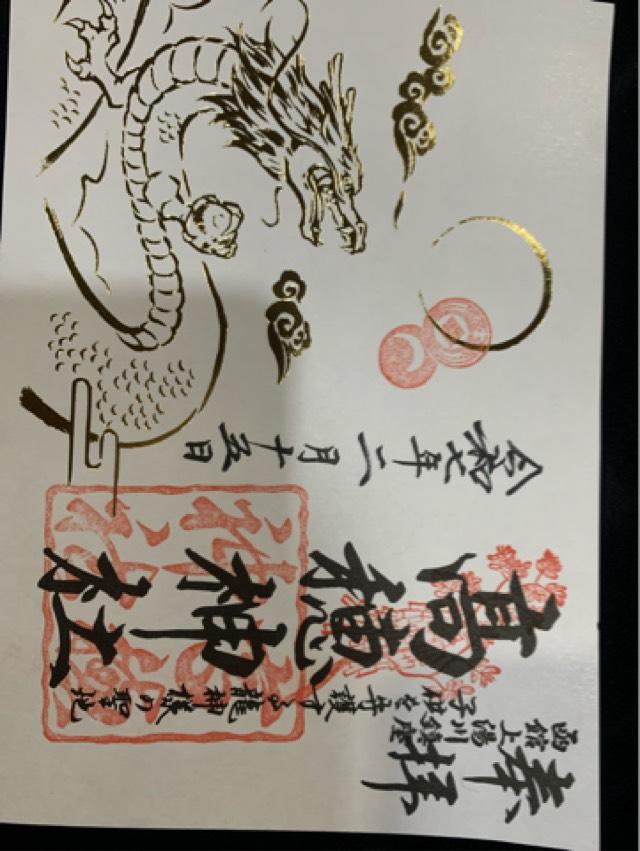 奉拝
函館上
湯川鎮座
子供を守護する
の聖地
高穂神社
令和七年二月十五日